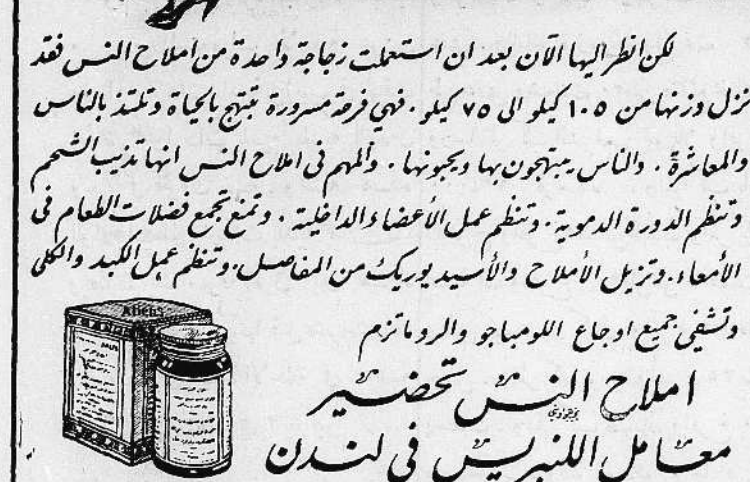 لكن انظر اليها الآن بعد ان استعملت زجاجة واحدة من املاح النس فقد
نزل وزنها من ١٠٥ كيلو الى ٧٥ كيلو. فهي فرحة مسرورة تبتهج بالحياة وتلتذ بالناس
والمعاشرة. والناس يبتهجون بها ويحبونها. والمهم في املاح النس انها تذيب الشحم
وتنظم الدورة الدموية. وتنظم عمل الأعضاء الداخلية. وتمنع تجمع فضلات الطعام في
الأمعاء. وتزيل الأملاح والأسيد يوريك من المفاصل. وتنظم عمل الكبد والكلى
وتشفي جميع اوجاع اللومباجو والروماتزم
املاح النس تحضير
معامل اللنبريس في لندن